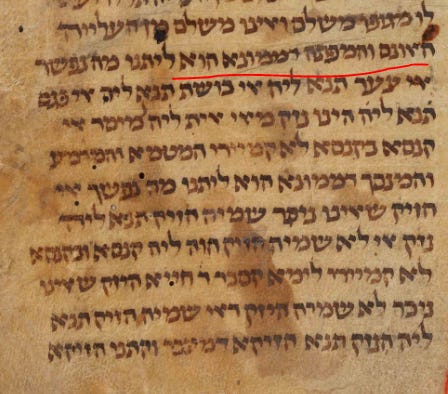 לו מגופו משלם ואינו משלם מן העלייה
האונס והמפתה דממונא הוא ליתני מה נפשך
אי צער תנא ליה אי בושת תנא ליה אי פגם
תנא ליה הינו נזק מאי אית ליה למימר אי
קנסא בקנסא לא קמיירי המטמא והמדמע
והמנסך דממונא הוא ליתני מה נפשך אי
היזק שאינו ניכר שמיה היזק תנא ליה
נזק אי לא שמיה היזק הוה ליה קנסא ובקנסא
לא קמיירי לימא קסבר ר חייא היזק שאינו
ניכר לא שמיה היזק דאי שמיה היזק תנא
ליה הנזק תנא הזיקא דמינכר והתני הזיקא